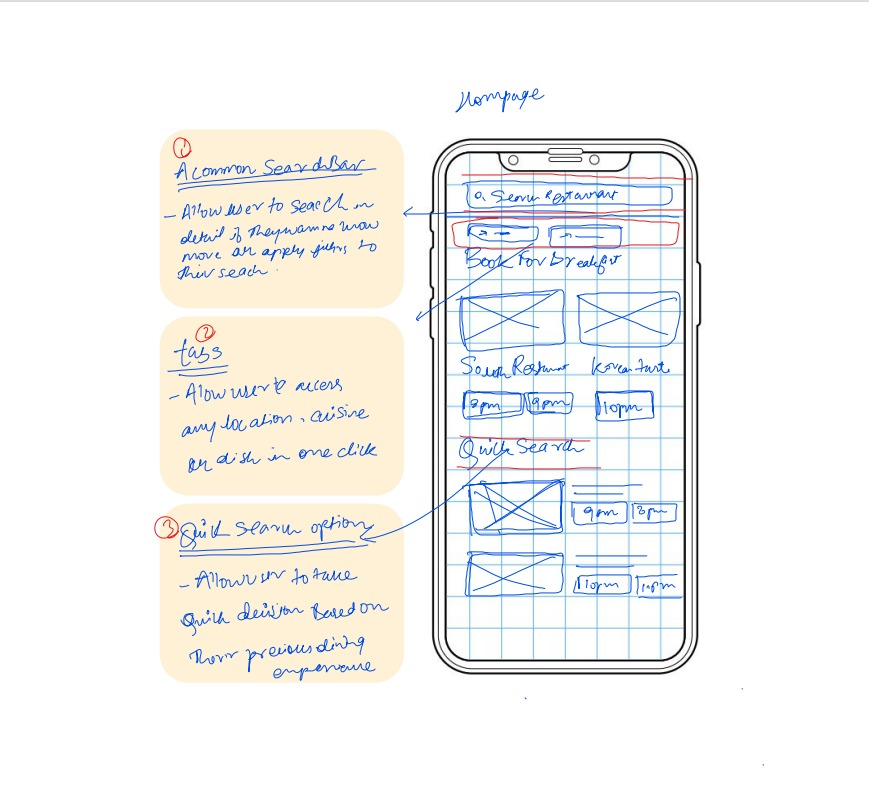 Hompage
1
A common Search Bar
- Allow user to seach in
detail if they wanna know
move or apply filters to
their seach.
2
tabs
- Allow user to access
any location, cuisine
or dish in one click
3
Quick Search option
- Allow user to take
Quick decision Based on
Their previous dining
experience
Search Restaurant
Book For breakfast
South Restaurant Korean
8pm 9pm 10pm
Quick Search
9pm
11pm